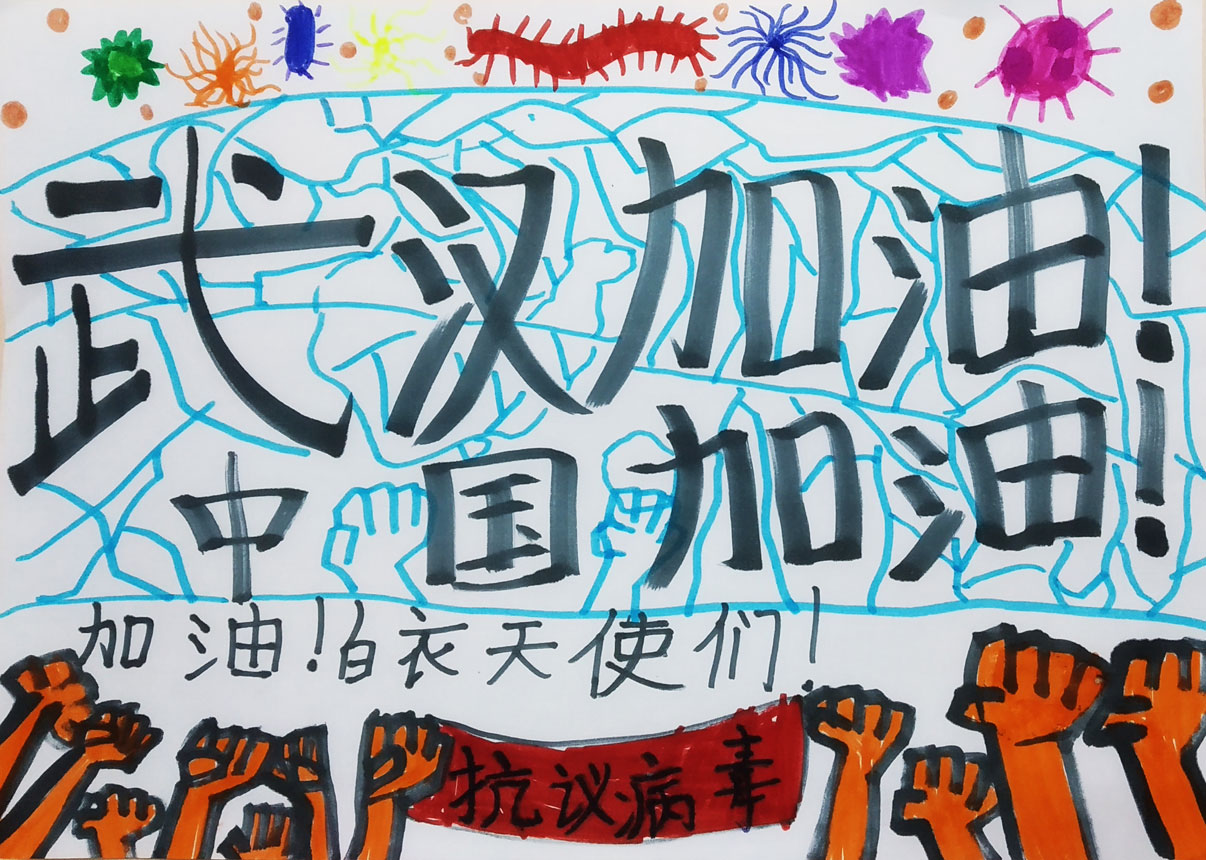 武汉加油!
中国加油!
加油!白衣天使们!
抗议病毒